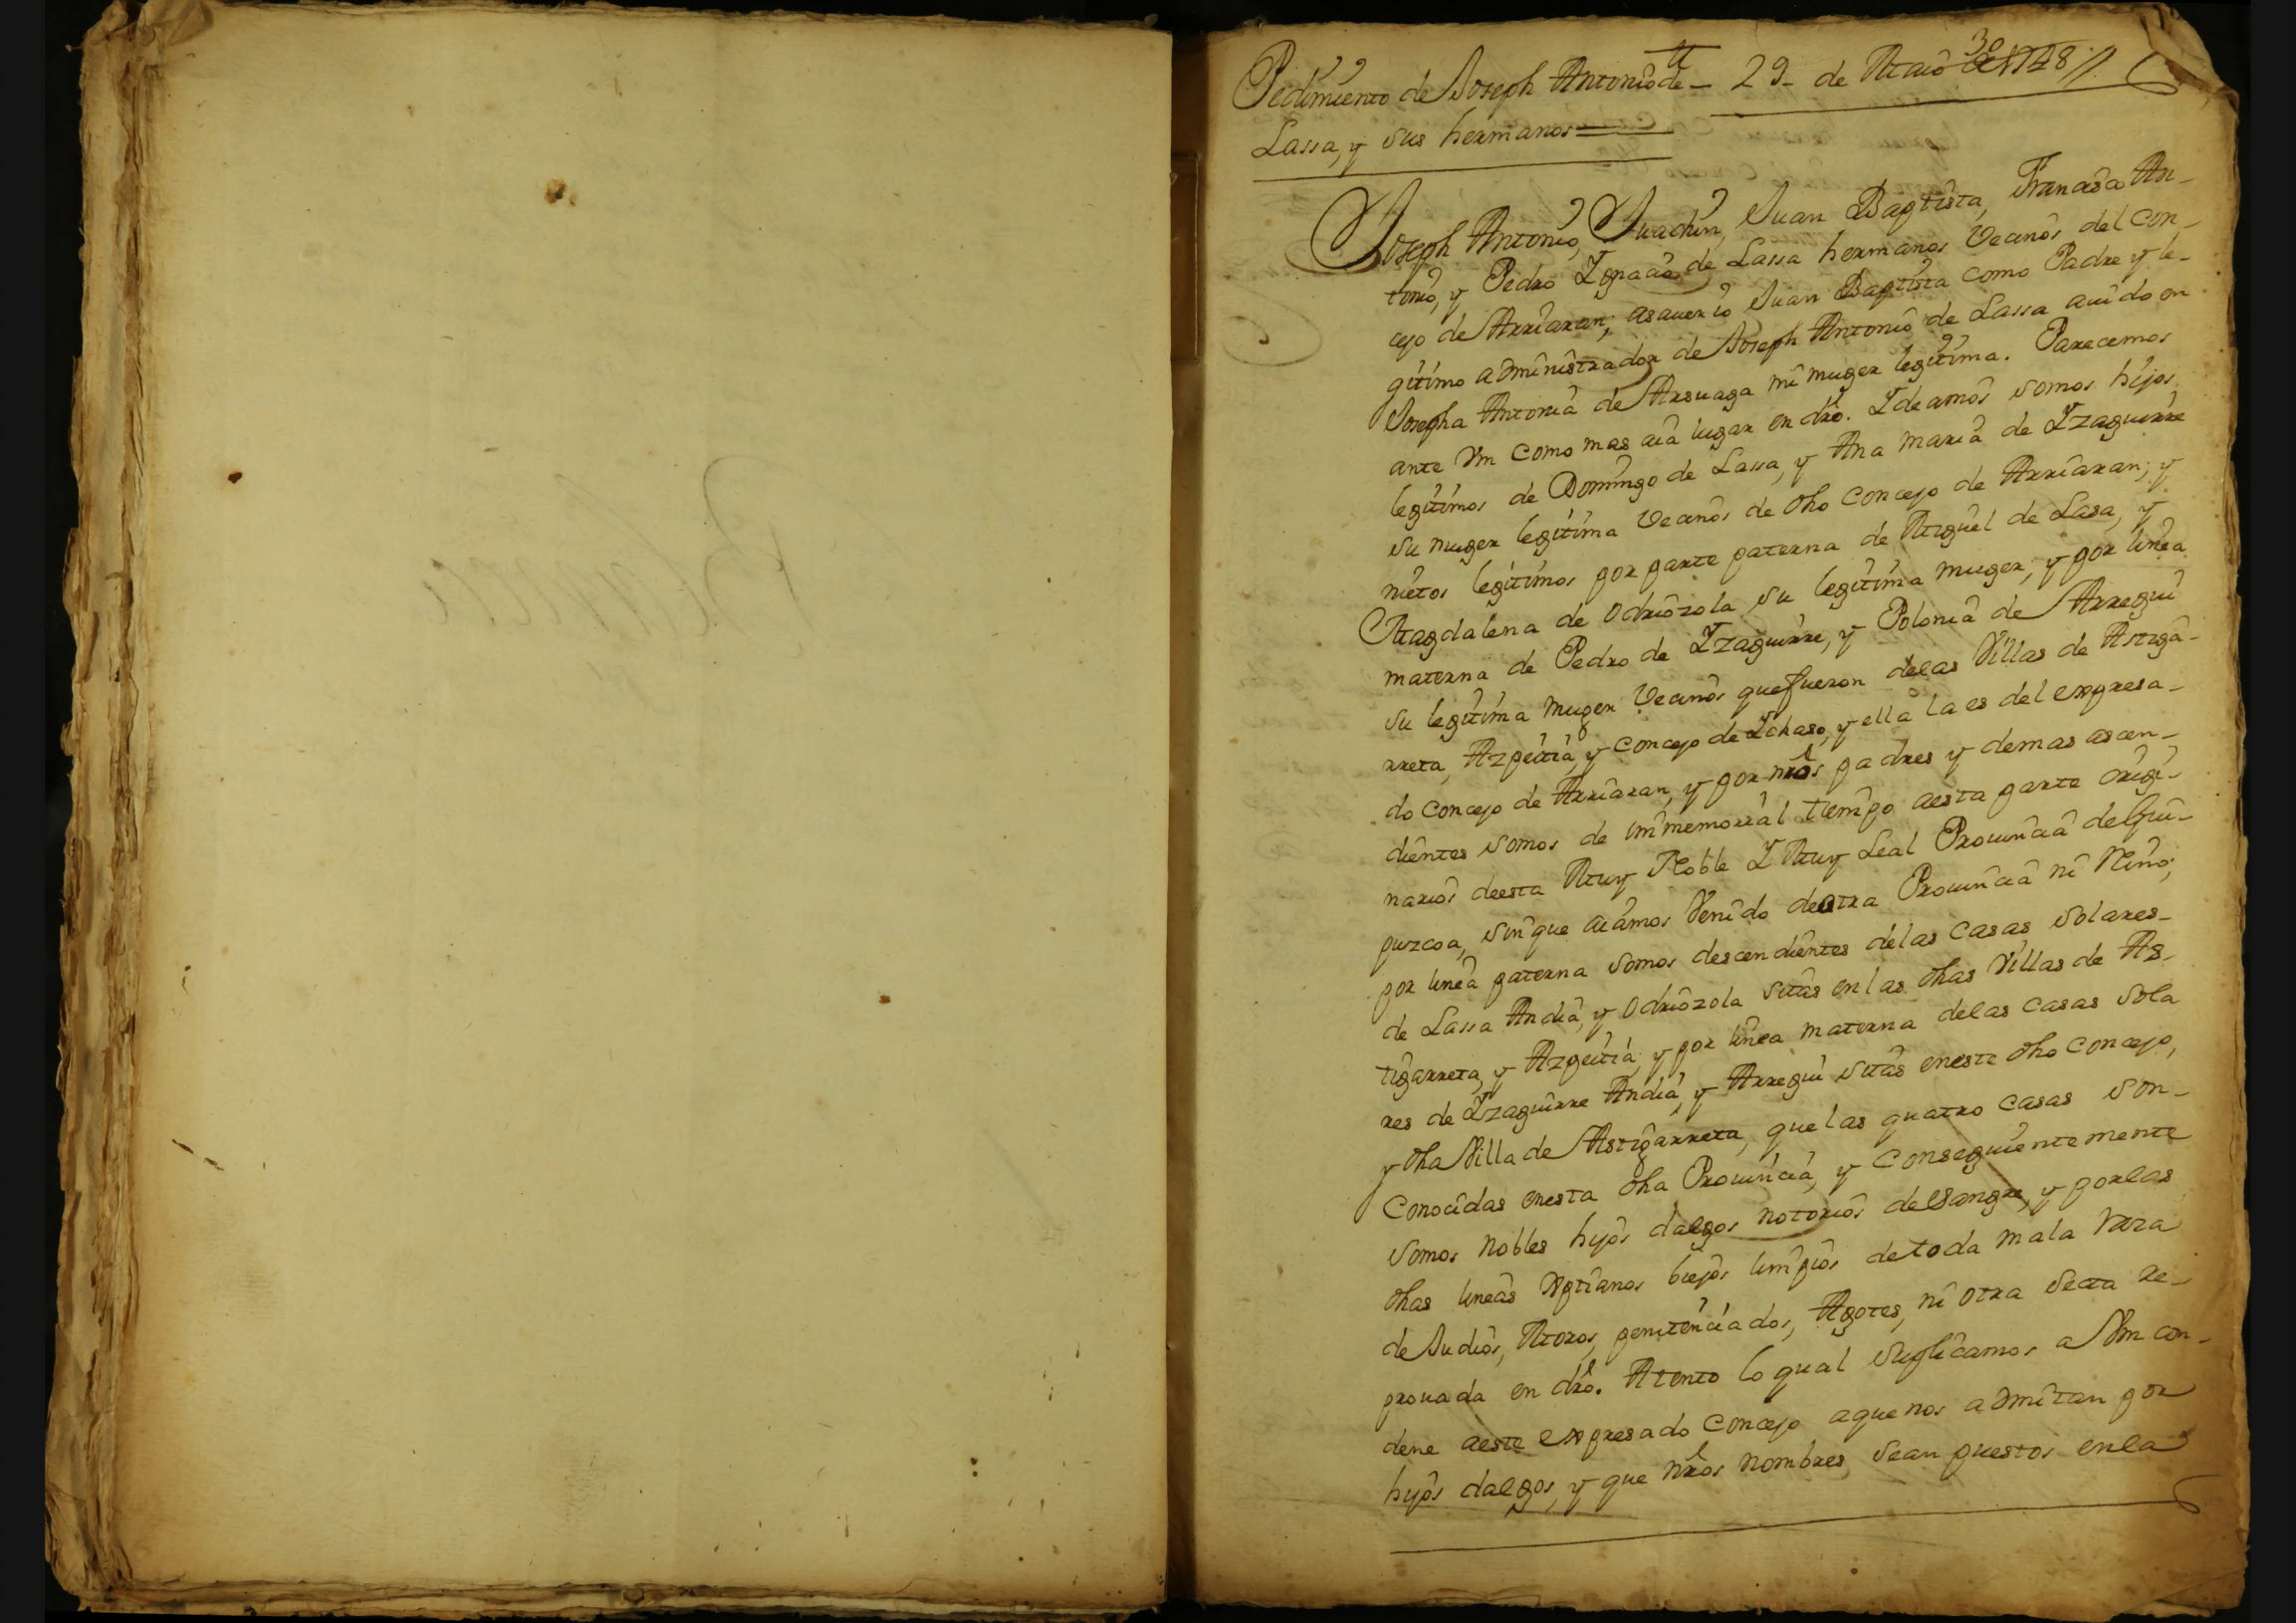 Pedimiento de Joseph Antonio de – 29 – de Maio de 1748 //
Lassa, y sus hermanos =
Joseph Antonio, Juachin, Juan Baptista, Francisco An-
tonio, y Pedro Ygnacio de Lassa hermanos Vecinos del Con-
cejo de Arriaran; asauer io Juan Baptista como Padre y le-
gitimo administrador de Joseph Antonio de Lassa auido en
Josepha Antonia de Arsuaga mi muger legitima. Parecemos
ante Vm como mas aia lugar en dro. Ydeamos somos hijos
legitimos de Domingo de Lassa, y Ana maria de Yzaguirre
su muger legitima Vecinos de dho Concejo de Arriaran; y
nietos legitimos por parte paterna de Miguel de Lasa, y
Magdalena de Odriozola su legitima muger, y por linea
materna de Pedro de Yzaguirre, y Polonia de Arregui
su legitima muger Vecinos que fueron delas Villas de Astiga-
rreta, Azpeitia, y Concejo de Ychaso, y ella la es del expresa-
do concejo de Arriaran, y por nros padres y demas ascen-
dientes somos de immemorial tiempo aesta parte origi-
narios deesta Muy Noble Y Muy Leal Prouincia de Gui-
puzcoa, sin que aiamos Venido deotra Prouincia ni Reino;
por linea paterna somos descendientes delas casas solares-
de Lassa Andia, y Odriozola sitas enlas dhas Villas de As-
tigarreta, y Azpeitia, y por linea materna delas casas sola
res de Yzaguirre Andia, y Arregui sitas eneste dho concejo,
y dha Villa de Astigarreta, que las quatro casas son-
Conocidas enesta dha Prouincia, y Conseguientemente
somos nobles hijos dalgos notorios de sangre, y porlas
dhas lineas Xptianos biejos limpios de toda mala raza
de Judios, Moros, penitenciados, Agotes, ni otra secta re-
prouada en dro. Atento lo qual suplicamos a Vm con-
dene aeste expresado Concejo aque nos admitan por
hijos dalgos, y que nros nombres sean puestos enla